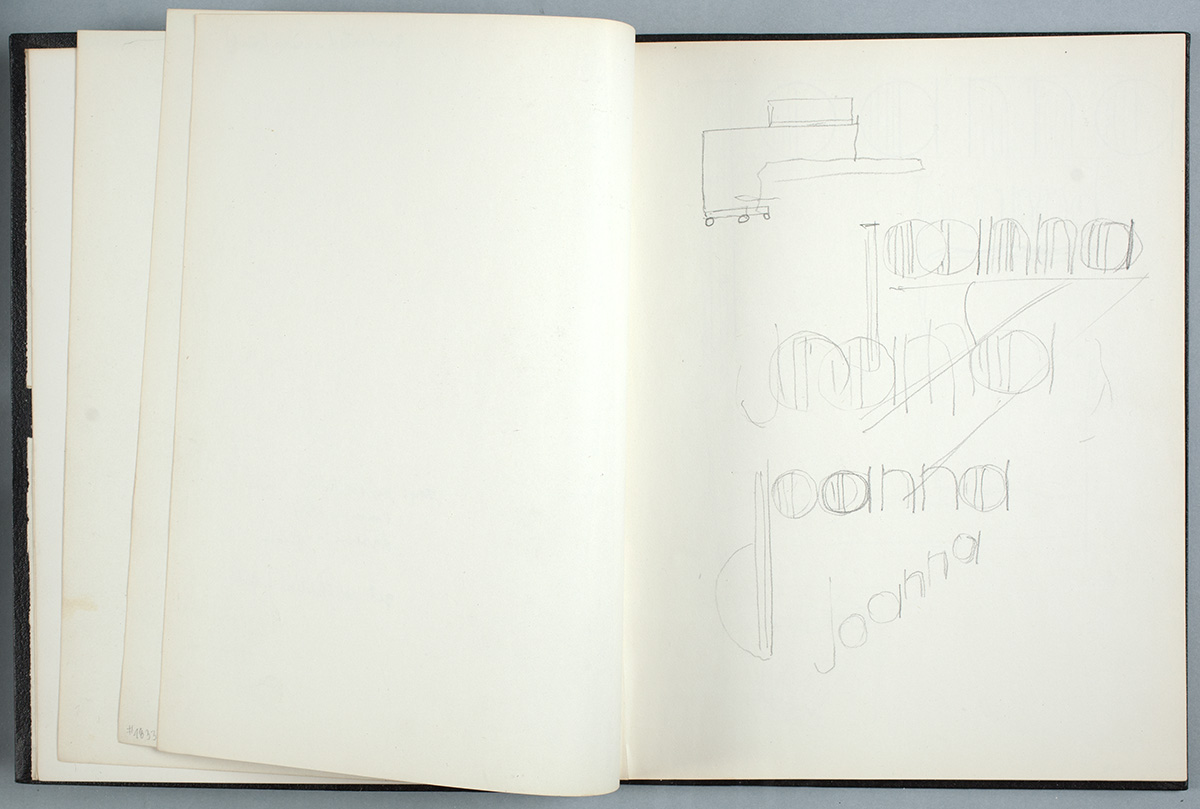 joanna
joanna
joanna
joanna
#1833